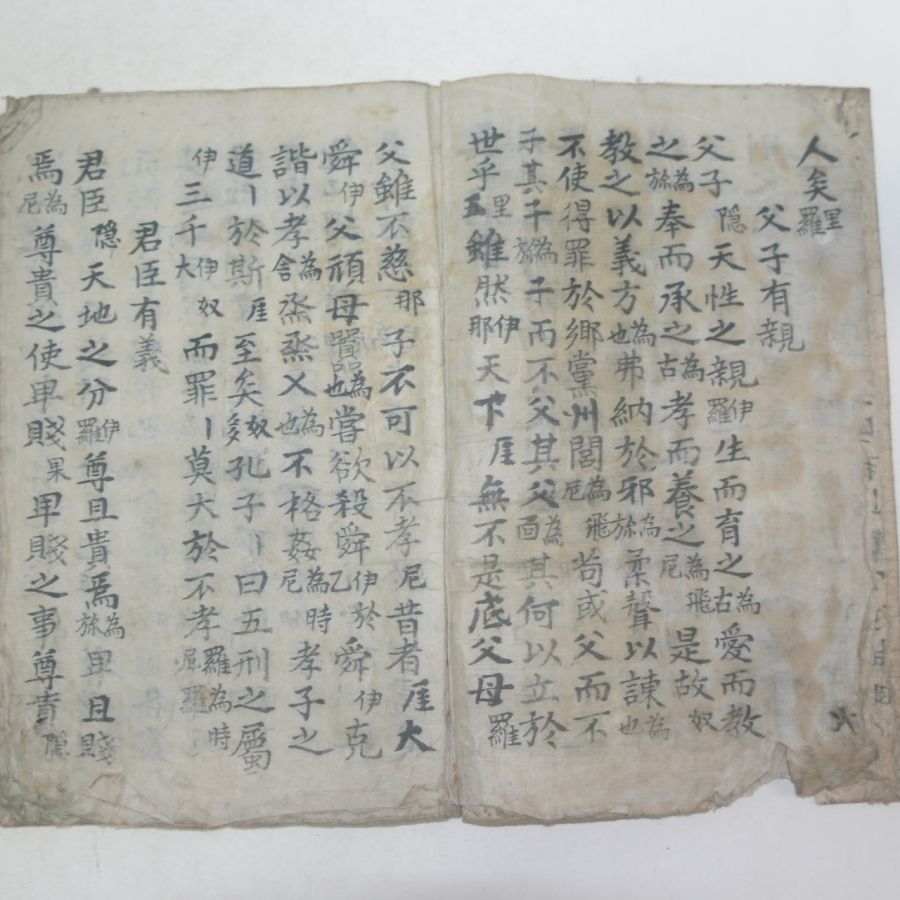 人矣里羅
父子有親
父子隠天性之親伊羅生而育之為古愛而教
之為旀奉而承之為古孝而養之為飛尼是故奴
教之以義方為也弗納於邪為旀柔聲以諌為也
不使得罪於鄉黨州閭為飛尼苟或父而不
子其子為旀子而不父其父為面其何以立於
世乎里五雖然伊那天下厓無不是底父母羅
父雖不慈那子不可以不孝尼昔者厓大
舜伊父頑母嚚為也嘗欲殺舜伊乙於舜伊克
諧以孝為舍烝烝乂為也不格姦為尼時孝子之
道丨於斯厓至矣奴多孔子丨曰五刑之屬
伊三千伊大奴而罪丨莫大於不孝羅為尼羅時
君臣有義
君臣隠天地之分伊羅尊且貴焉為旀卑且賤
焉為尼尊貴之使卑賤果卑賤之事尊貴隠